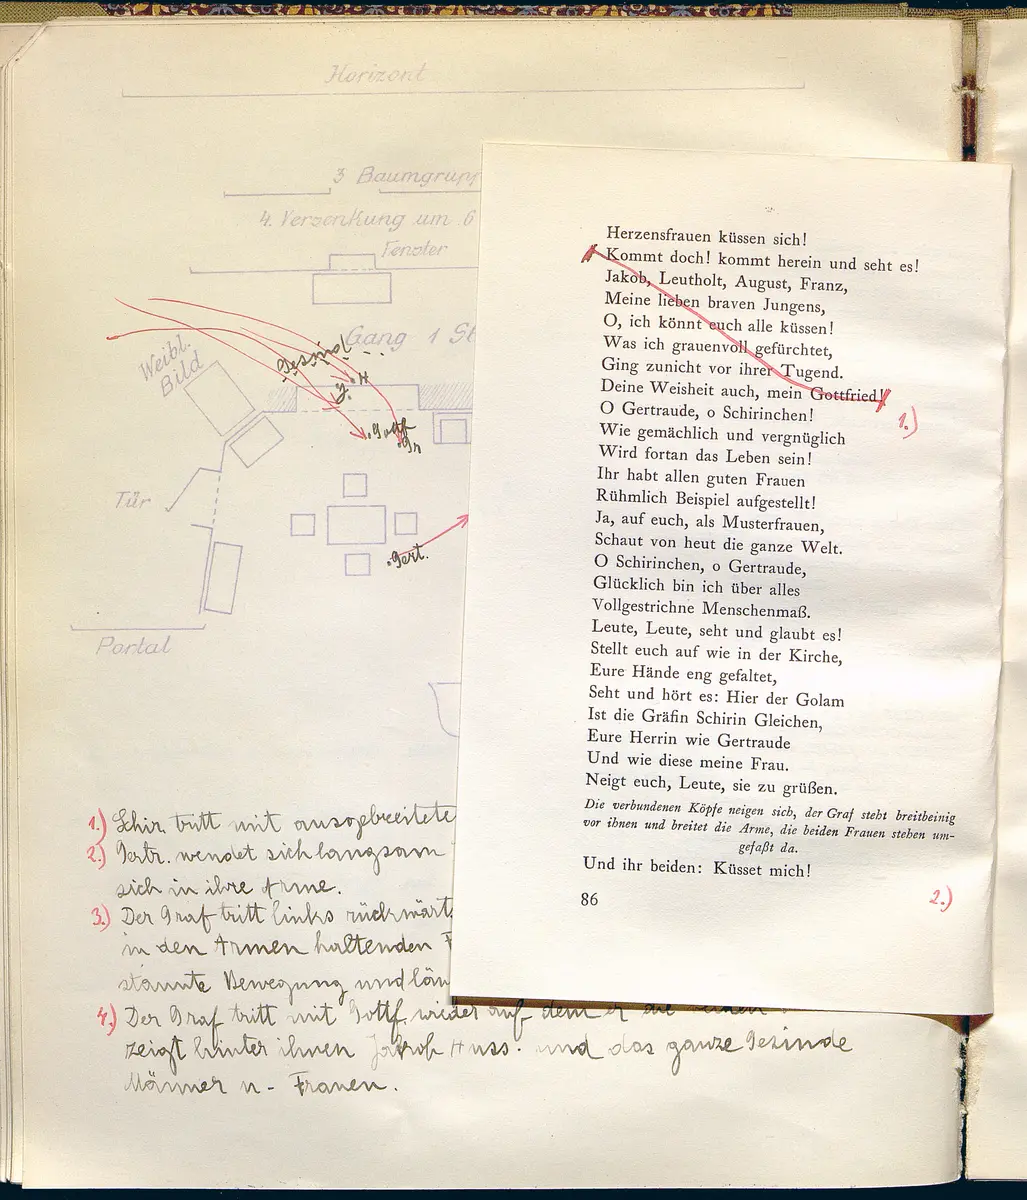 Horizont
3 Baumgrupp
4. Versenkung um 6
Fenster
Gang 1 St
Weibl.
Bild
Gesind
J. H
Gottf
Gr
Tür
Gert.
Portal
1.) Schir. tritt mit ausgebreitete
2.) Gertr. wendet sich langsam
sich in ihre Arme.
3.) Der Graf tritt links rückwärt
in den Armen haltenden F
stannte Bewegung und
4.) Der Graf tritt mit Gottf. wieder auf dem er die
zeigt hinter ihnen Jakob Huss. und das ganze Gesinde
Männer u. Frauen.
Herzensfrauen küssen sich!
Kommt doch! kommt herein und seht es!
Jakob, Leutholt, August, Franz,
Meine lieben braven Jungens,
O, ich könnt euch alle küssen!
Was ich grauenvoll gefürchtet,
Ging zunicht vor ihrer Tugend.
Deine Weisheit auch, mein Gottfried!
1.)
O Gertraude, o Schirinchen!
Wie gemächlich und vergnüglich
Wird fortan das Leben sein!
Ihr habt allen guten Frauen
Rühmlich Beispiel aufgestellt!
Ja, auf euch, als Musterfrauen,
Schaut von heut die ganze Welt.
O Schirinchen, o Gertraude,
Glücklich bin ich über alles
Vollgestrichne Menschenmaß.
Leute, Leute, seht und glaubt es!
Stellt euch auf wie in der Kirche,
Eure Hände eng gefaltet,
Seht und hört es: Hier der Golam
Ist die Gräfin Schirin Gleichen,
Eure Herrin wie Gertraude
Und wie diese meine Frau.
Neigt euch, Leute, sie zu grüßen.
Die verbundenen Köpfe neigen sich, der Graf steht breitbeinig
vor ihnen und breitet die Arme, die beiden Frauen stehen um-
gefaßt da.
Und ihr beiden: Küsset mich!
86
2.)